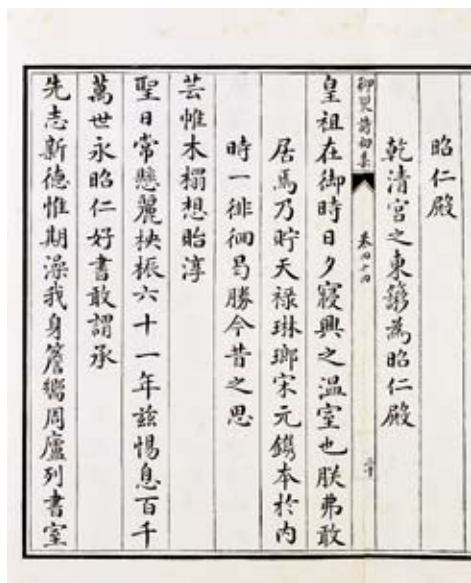 昭仁殿
乾清宮之東簃爲昭仁殿
御製詩初集
卷四十四
二十
皇祖在御時日夕寢興之温室也朕弗敢
居焉乃貯天禄琳瑯宋元鐫本於内
時一徘徊曷勝今昔之思
芸帷木榻想貽淳
聖日常懸麗袂振六十一年兹惕息百千
萬世永昭仁好書敢謂承
先志新德惟期澡我身簷嚮周廬列書室